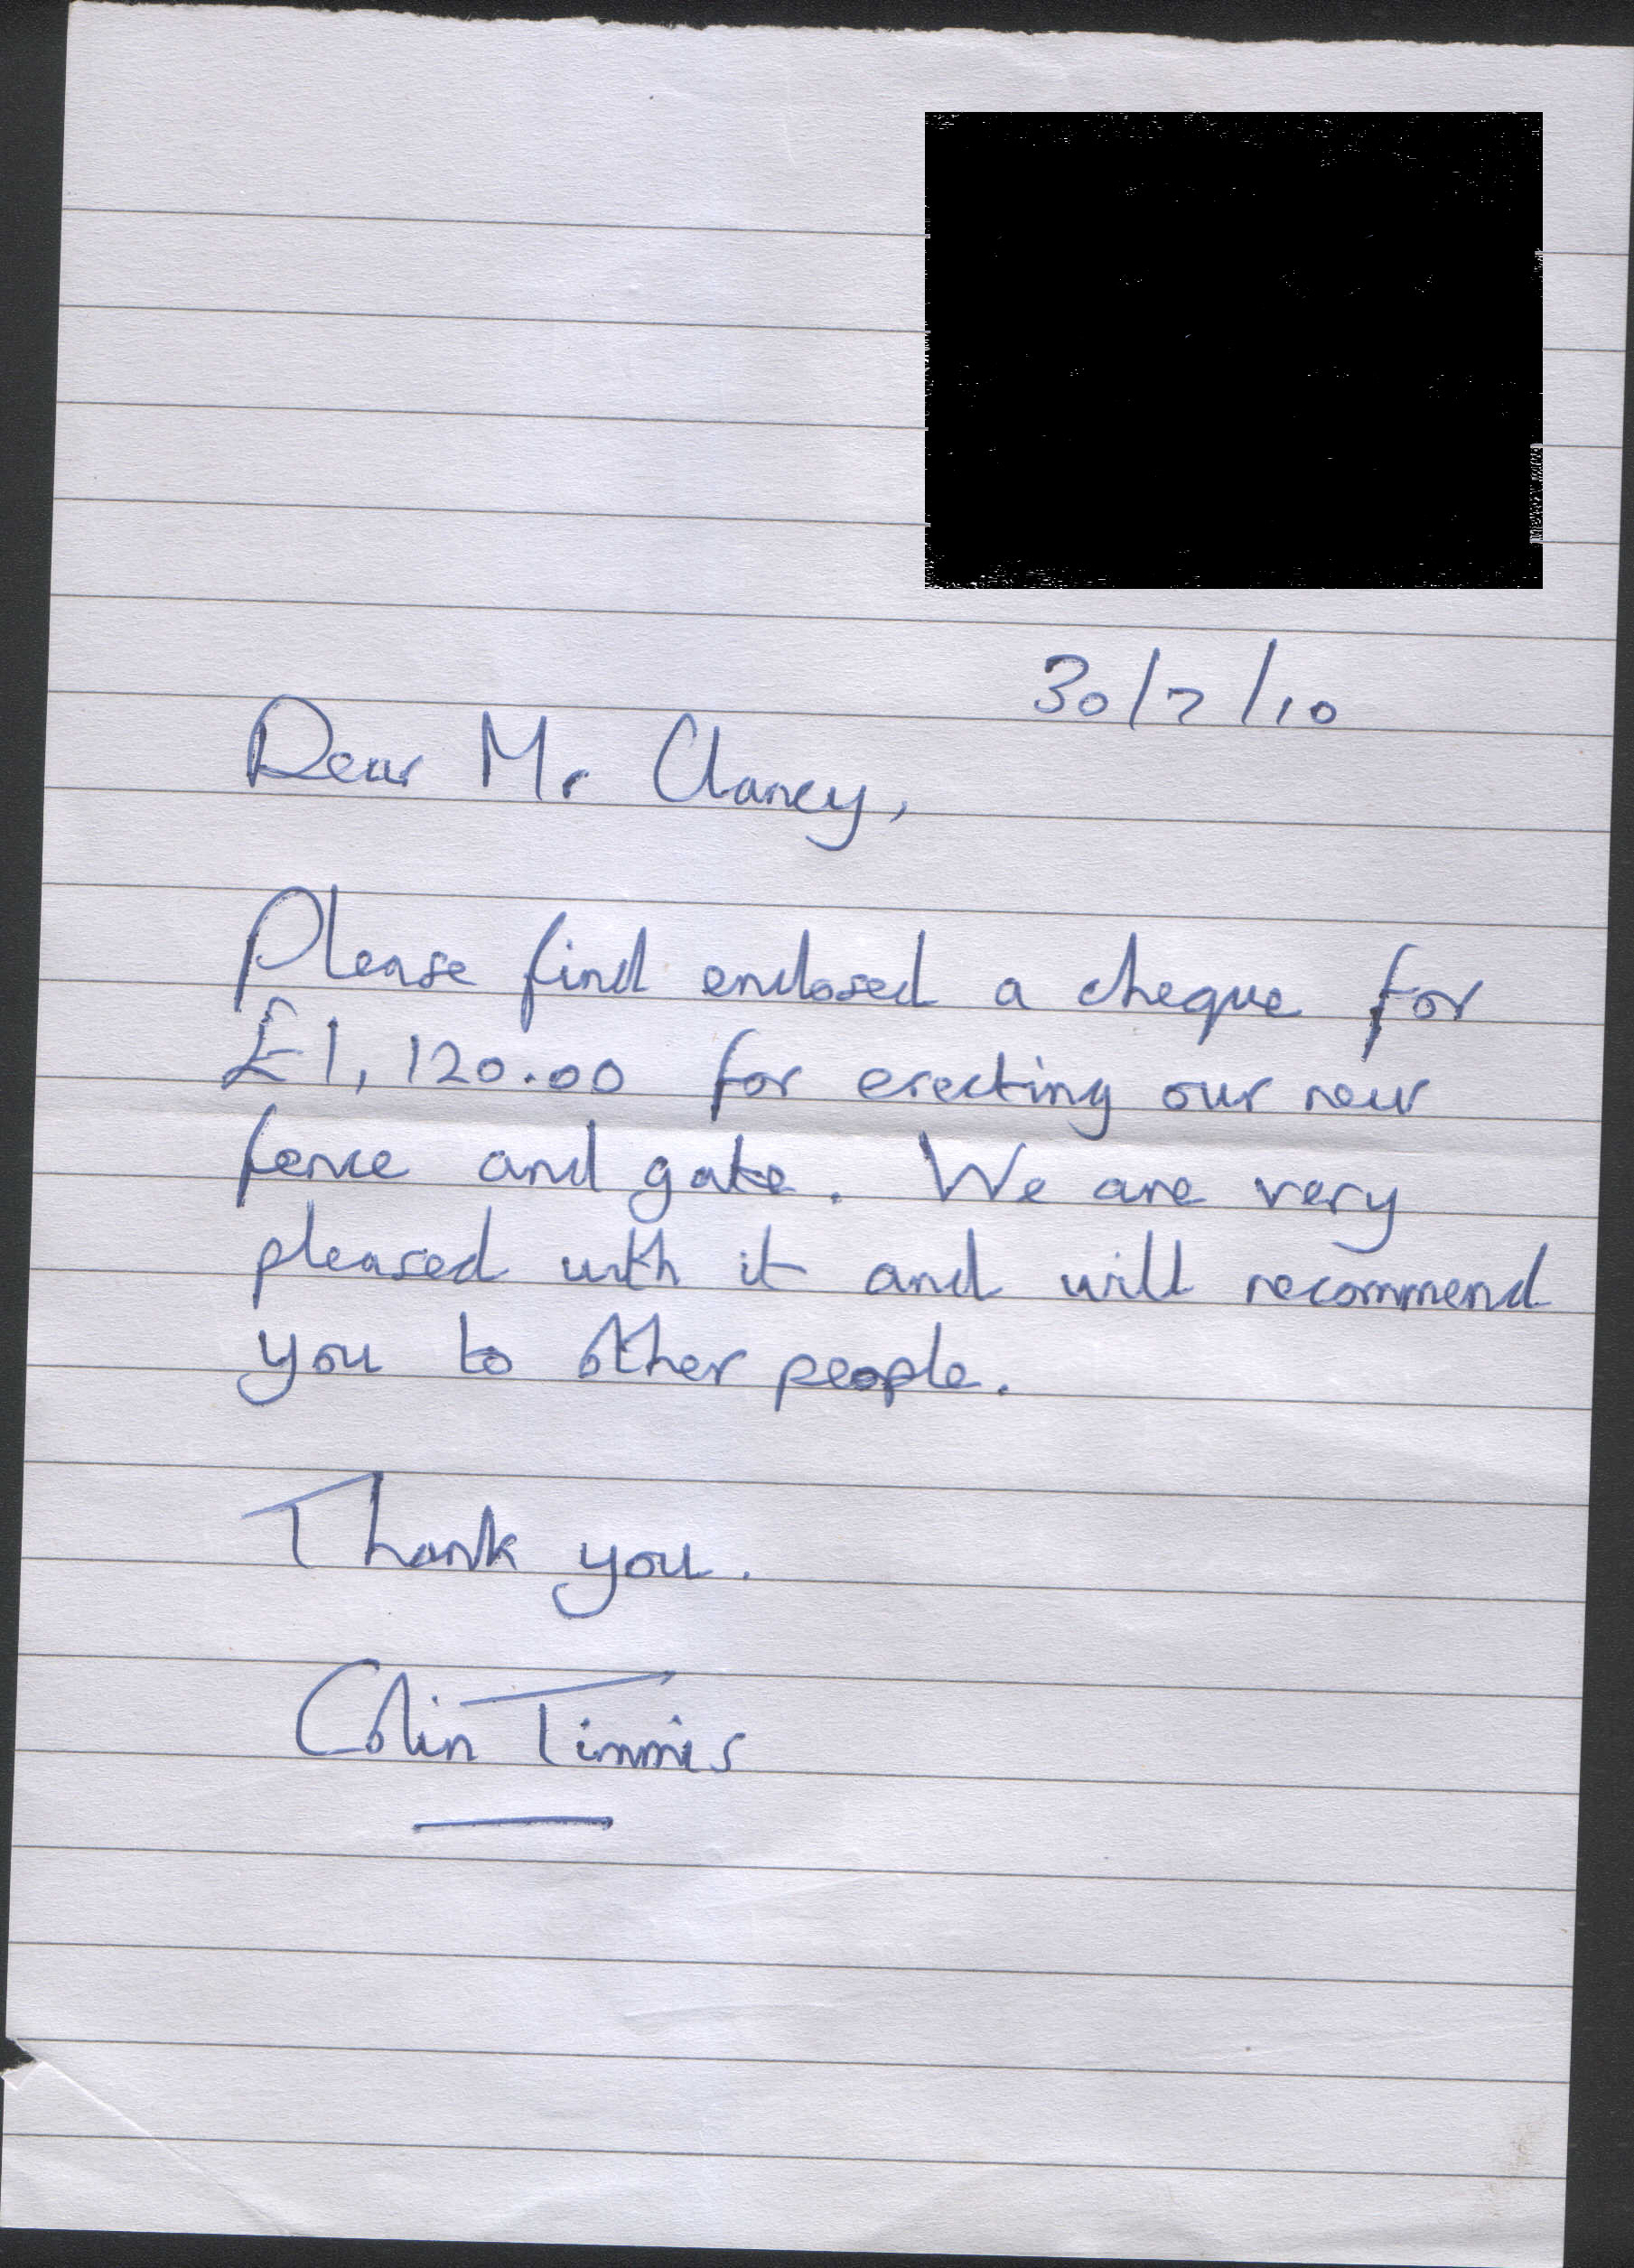 30/7/10
Dear Mr Clancy,
Please find enclosed a cheque for
£1,120.00 for erecting our new
fence and gate. We are very
pleased with it and will recommend
you to other people.
Thank you.
Colin Timmis